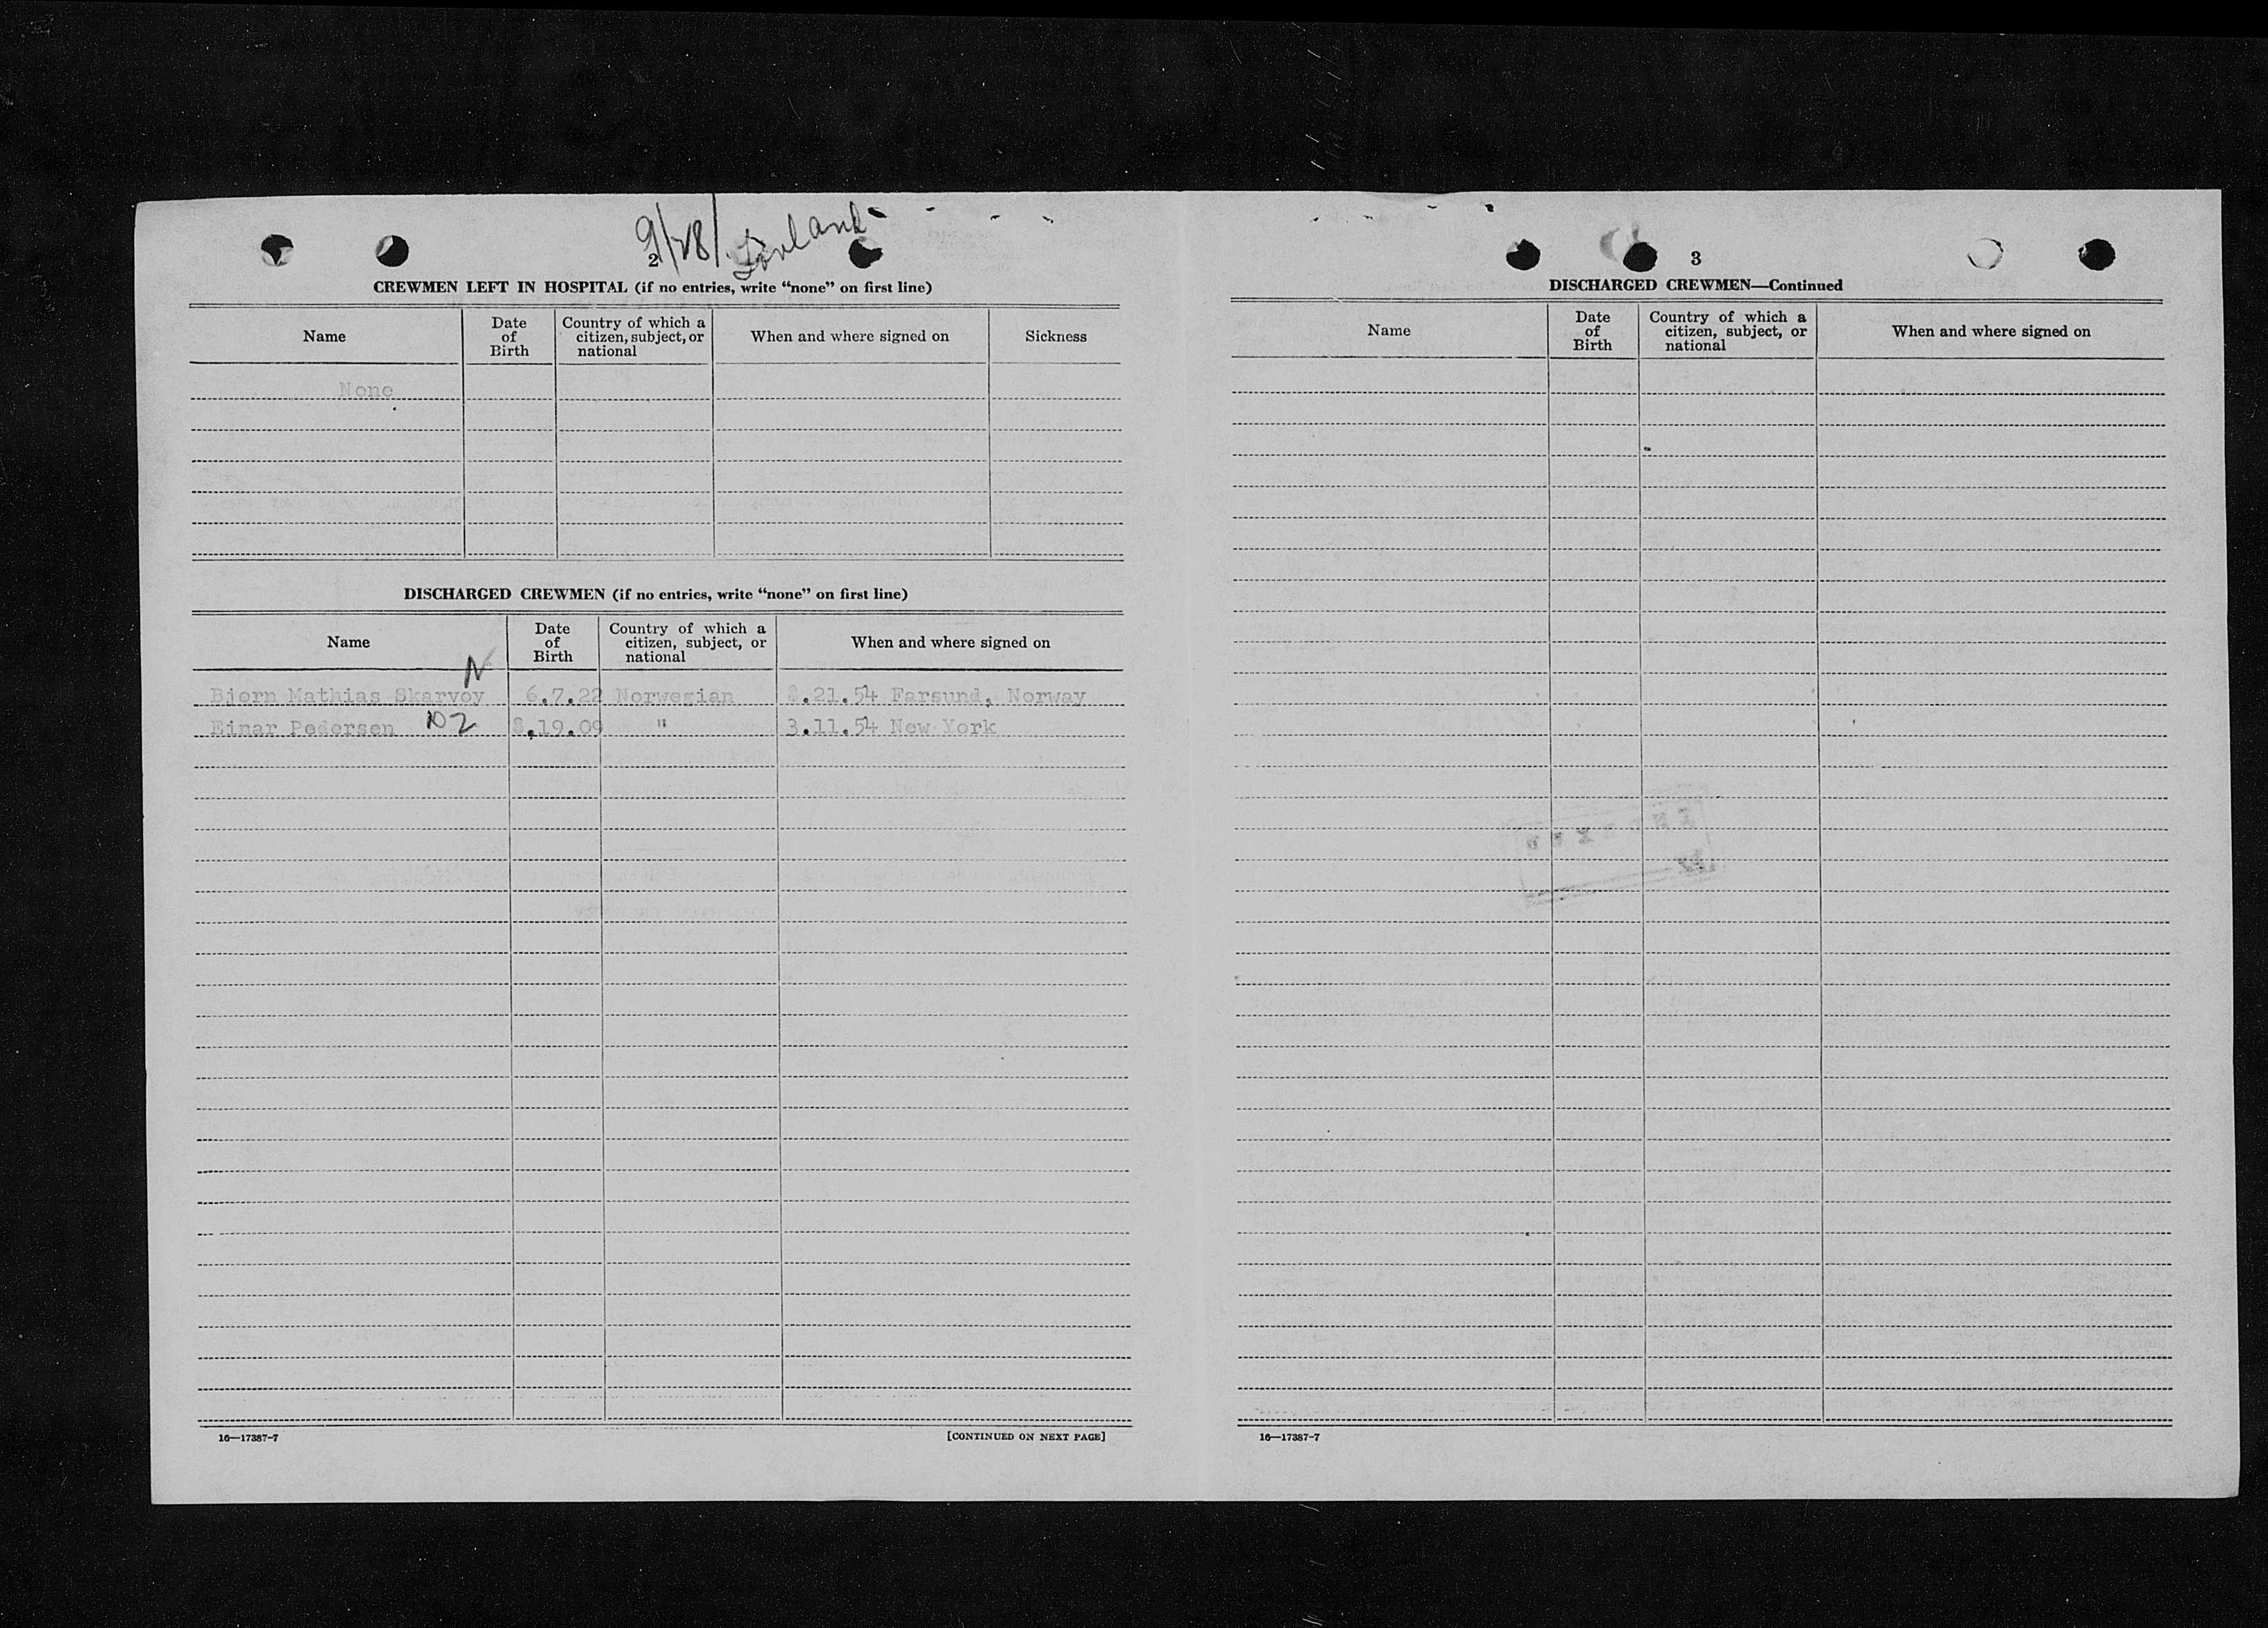 9/28/ Lovland
2
CREWMEN LEFT IN HOSPITAL (if no entries, write “none” on first line)
Name
Date of Birth
Country of which a citizen, subject, or national
When and where signed on
Sickness
None
DISCHARGED CREWMEN (if no entries, write “none” on first line)
Name
Date of Birth
Country of which a citizen, subject, or national
When and where signed on
N
Bjorn Mathias Skarvoy 6.7.22 Norwegian 8.21.54 Farsund, Norway
Einar Pedersen 102 8.19.09 " 3.11.54 New York
16—17387-7
[CONTINUED ON NEXT PAGE]
3
DISCHARGED CREWMEN—Continued
Name
Date of Birth
Country of which a citizen, subject, or national
When and where signed on
INDEXED
16—17387-7